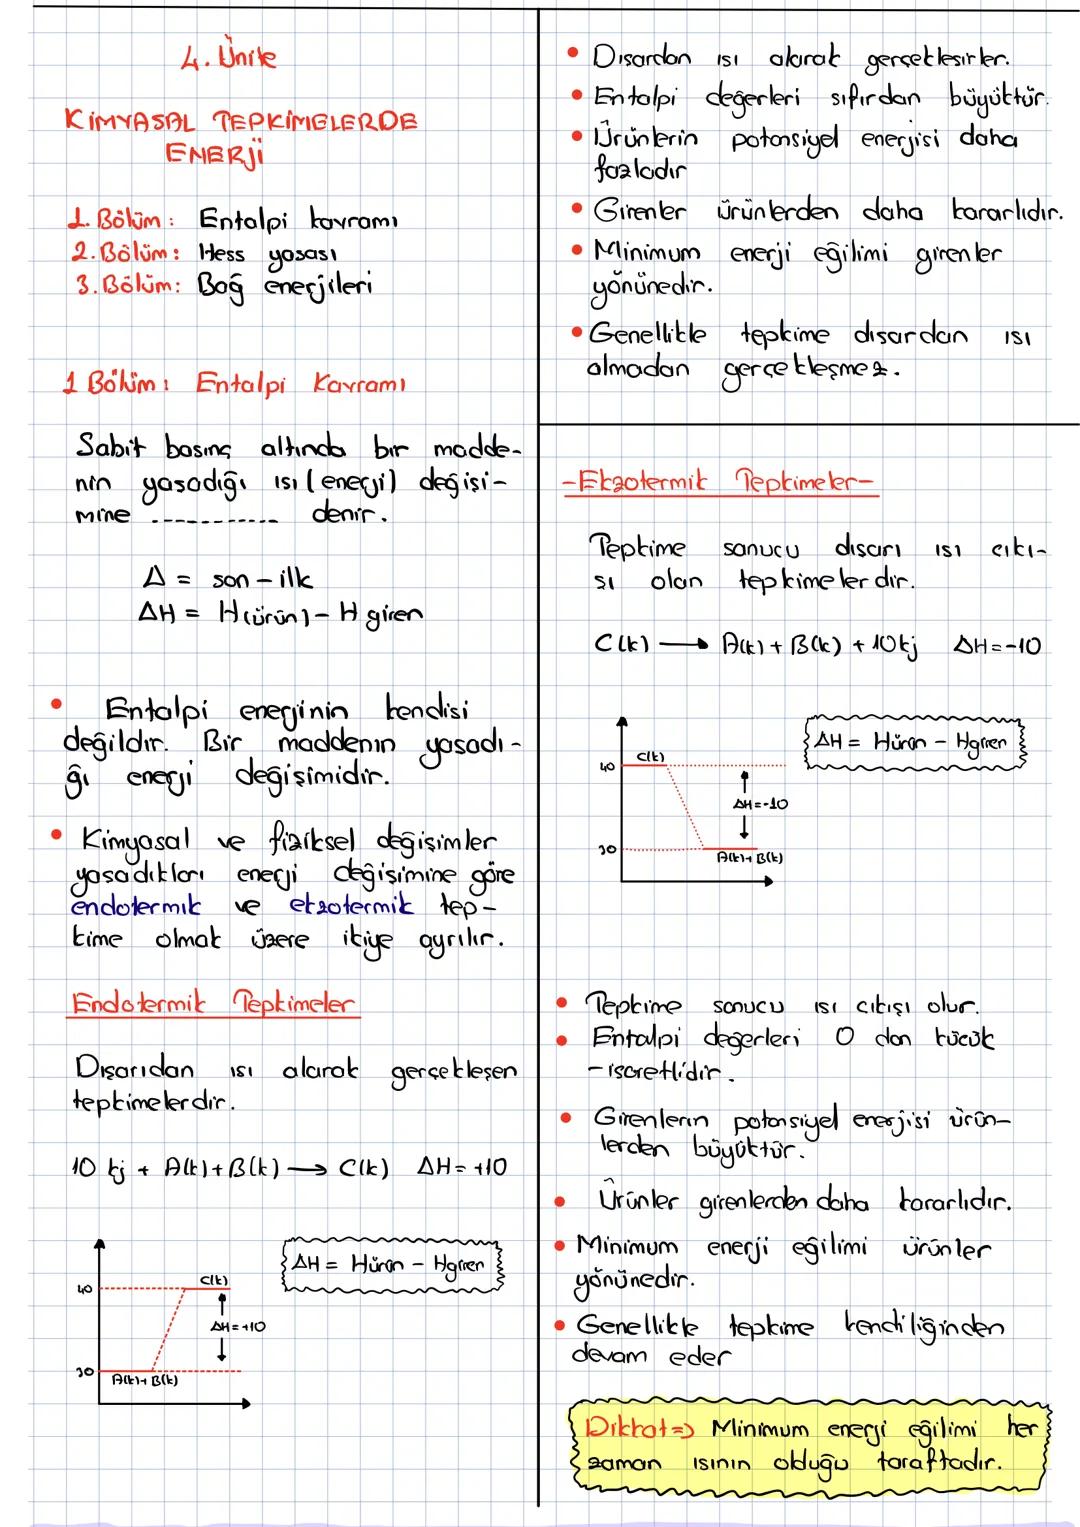 4. Ünite
KİMYASAL TEPKİMELERDE
ENERJİ
1. Bölüm: Entalpi kavramı
2. Bölüm: Hess yasası
3. Bölüm: Bağ enerjileri
1 Bölüm: Entalpi Kavramı
Sabit basınç altında bir madde-
nin yaşadığı ısı (enerji) değişi-
mine ----------- denir.
Δ = son - ilk
ΔH = H(ürün) - H giren
• Entalpi enerjinin kendisi
değildir. Bir maddenin yaşadı-
ğı enerji değişimidir.
• Kimyasal ve fiziksel değişimler
yaşadıkları enerji değişimine göre
endotermik ve ekzotermik tep-
kime olmak üzere ikiye ayrılır.
Endotermik Tepkimeler
Dışarıdan ısı alarak gerçekleşen
tepkimelerdir.
10 kj + A(k) + B(k) → C(k) ΔH = +10
ΔH = Hürün - Hgiren
40
C(k)
ΔH = +10
30
A(k)+ B(k)
• Dısardan ısı alarak gerçeklesirler.
• Entalpi değerleri sıfırdan büyüktür.
• Ürünlerin potansiyel enerjisi daha
fazladır
• Girenler ürünlerden daha kararlıdır.
• Minimum enerji eğilimi girenler
yönünedir.
• Genellikle tepkime dısardan ısı
almadan gerçekleşmez.
-Ekzotermik Tepkimeler-
Tepkime sonucu dısarı ısı cıkı-
şı olan tepkimelerdir.
C(k) → A(k) + B(k) + 10kj ΔH = -10
ΔH = Hürün - Hgiren
40
C(k)
ΔH = -10
30
A(k)+ B(k)
• Tepkime sonucu ısı cıkışı olur.
• Entalpi değerleri 0 dan kücük
- isaretlidir.
• Girenlerin potansiyel enerjisi ürün-
lerden büyüktür.
• Ürünler girenlerden daha kararlıdır.
• Minimum enerji eğilimi ürünler
yönünedir.
• Genellikle tepkime kendiliğinden
devam eder
Dikkat=> Minimum enerji eğilimi her
zaman ısının olduğu taraftadır.